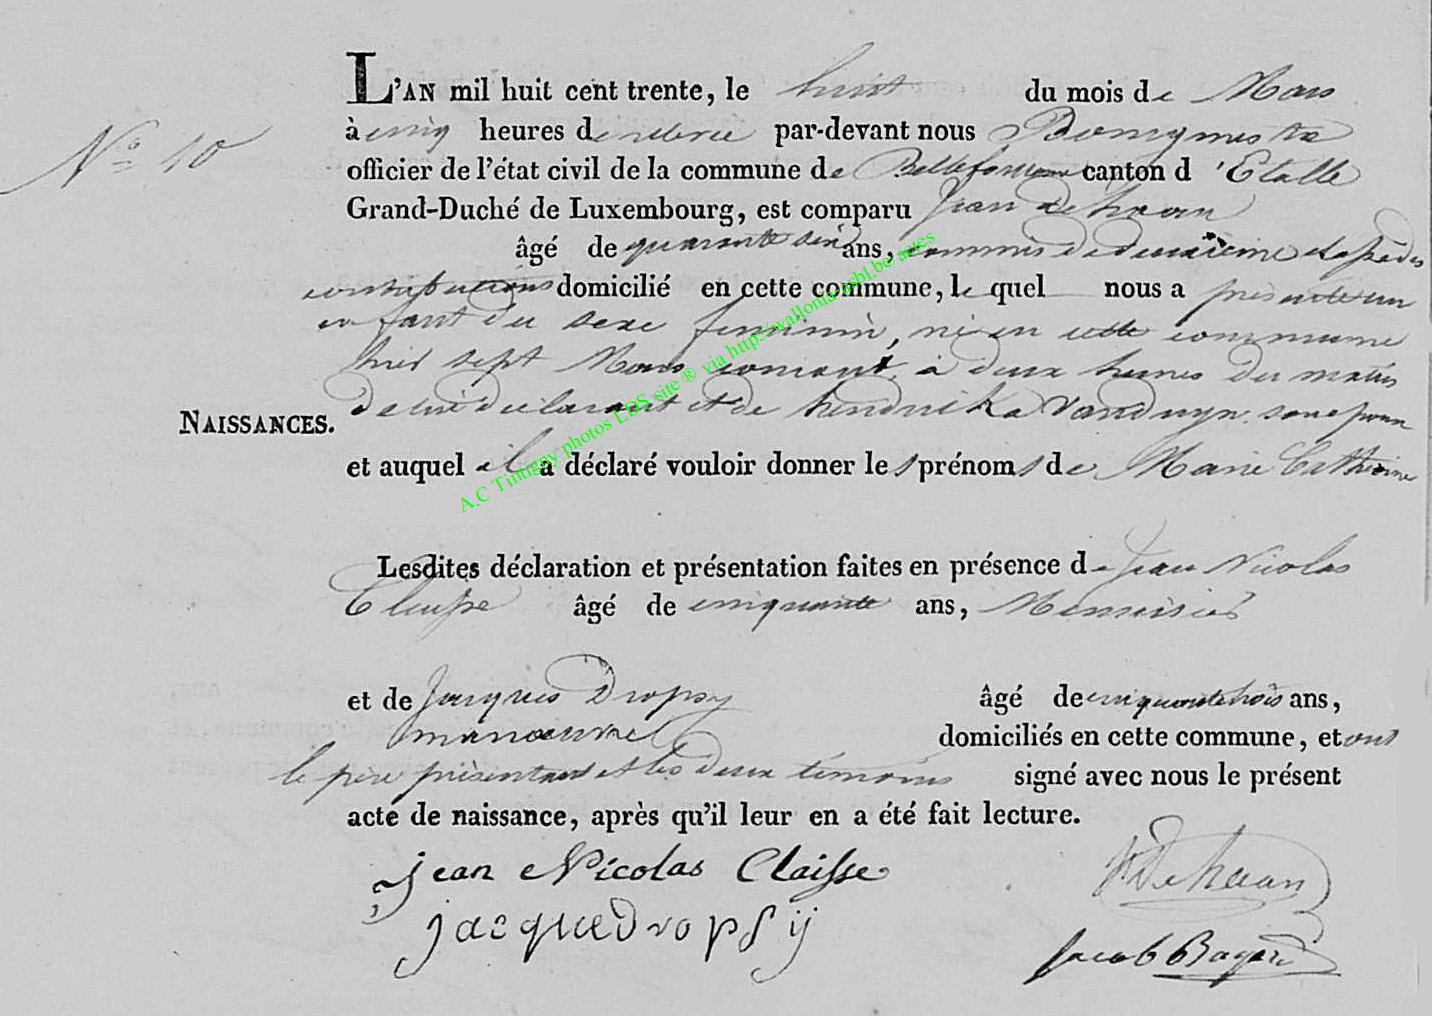 L'AN mil huit cent trente, le huit du mois de Mars
N° 10
à cinq heures de relevée par-devant nous Bourgmestre
officier de l'état civil de la commune de Bellefontaine canton d'Etalle
Grand-Duché de Luxembourg, est comparu Jean de haan
âgé de quarante six ans, commis de deuxième classe des
contributions domicilié en cette commune, lequel nous a présenté un
enfant du sexe feminin, né en cette commune
hier sept Mars courant, à deux heures du matin
de lui déclarant et de hendrika Vanduyn son epouse
NAISSANCES.
et auquel il a déclaré vouloir donner les prénoms de Marie Catherine
Lesdites déclaration et présentation faites en présence de Jean Nicolas
Claisse âgé de cinquante ans, Menuisier
et de Jacques Dropsy âgé de cinquante trois ans,
manoeuvre domiciliés en cette commune, et ont
le père présentant et les deux témoins signé avec nous le présent
acte de naissance, après qu'il leur en a été fait lecture.
jean Nicolas Claisse
DeHaan
jacque Dropsij
Jacob Bagard
A.C Tintigny photos LDS site ® via http://wallonia-asbl.be/actes